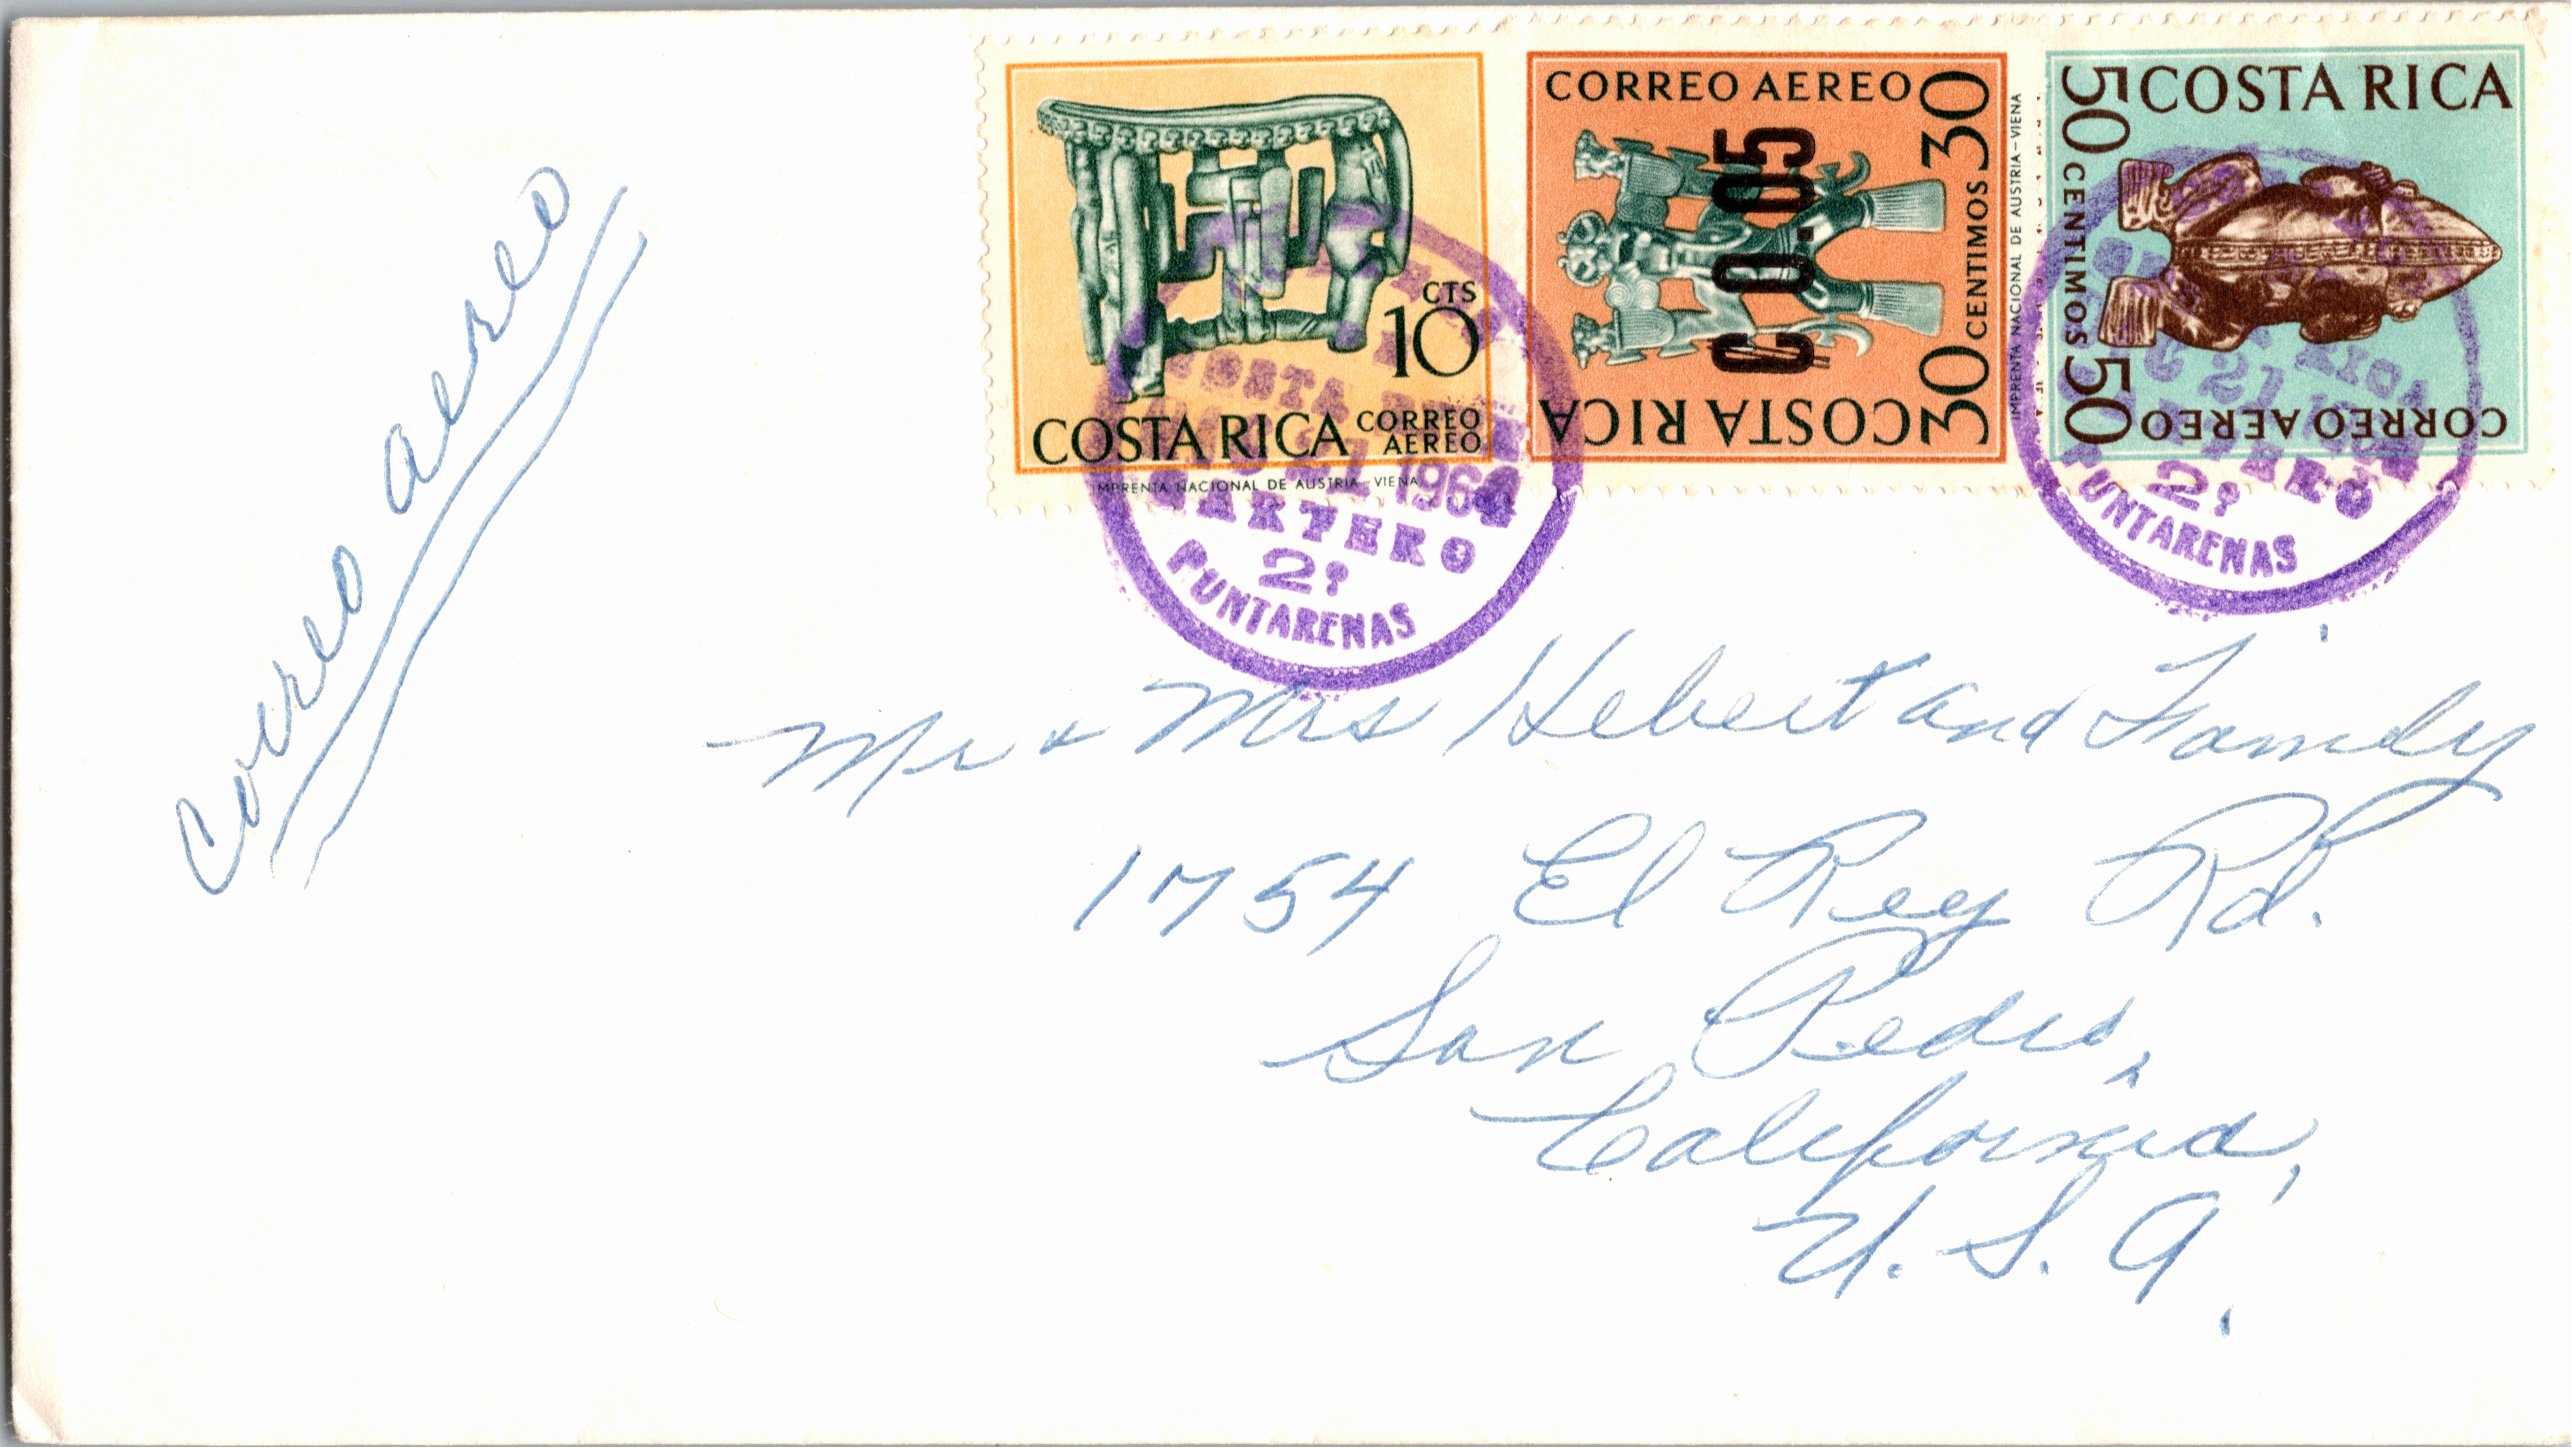 correo aereo
CTS
10
COSTA RICA CORREO AEREO
IMPRENTA NACIONAL DE AUSTRIA-VIENA
CORREO AEREO
30 CENTIMOS 30
C 0.05
COSTA RICA
IMPRENTA NACIONAL DE AUSTRIA-VIENA
COSTA RICA
50 CENTIMOS 50
CORREO AEREO
COSTA
21 1964
CARTERO
2º
PUNTARENAS
RICA
21
2º
PUNTARENAS
Mr & Mrs Hebert and Family
1754 El Rey Rd.
San Pedro,
California,
U.S.A.